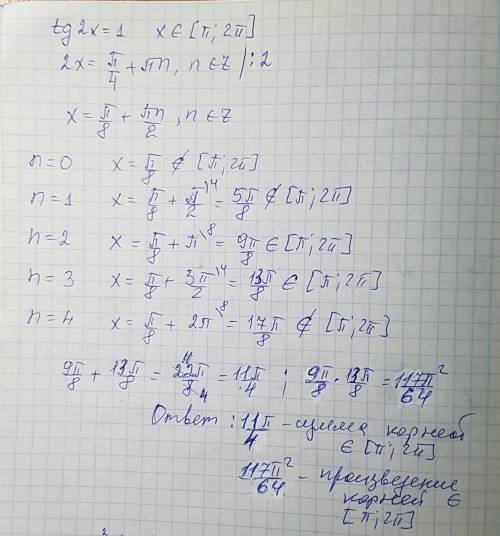 tg 2x = 1   x ∈ [π; 2π]
2x = π/4 + πn, n ∈ Z /:2
x = π/8 + πn/2, n ∈ Z
n = 0   x = π/8 ∉ [π; 2π]
n = 1   x = π/8 + π/2 \4 = 5π/8 ∉ [π; 2π]
n = 2   x = π/8 + π \8 = 9π/8 ∈ [π; 2π]
n = 3   x = π/8 + 3π/2 \4 = 13π/8 ∈ [π; 2π]
n = 4   x = π/8 + 2π \8 = 17π/8 ∉ [π; 2π]
9π/8 + 13π/8 = 22π/8 = 11π/4 ; 9π/8 · 13π/8 = 117π²/64
Ответ: 11π/4 - сумма корней
∈ [π; 2π]
117π²/64 - произведение
корней ∈
[π; 2π]